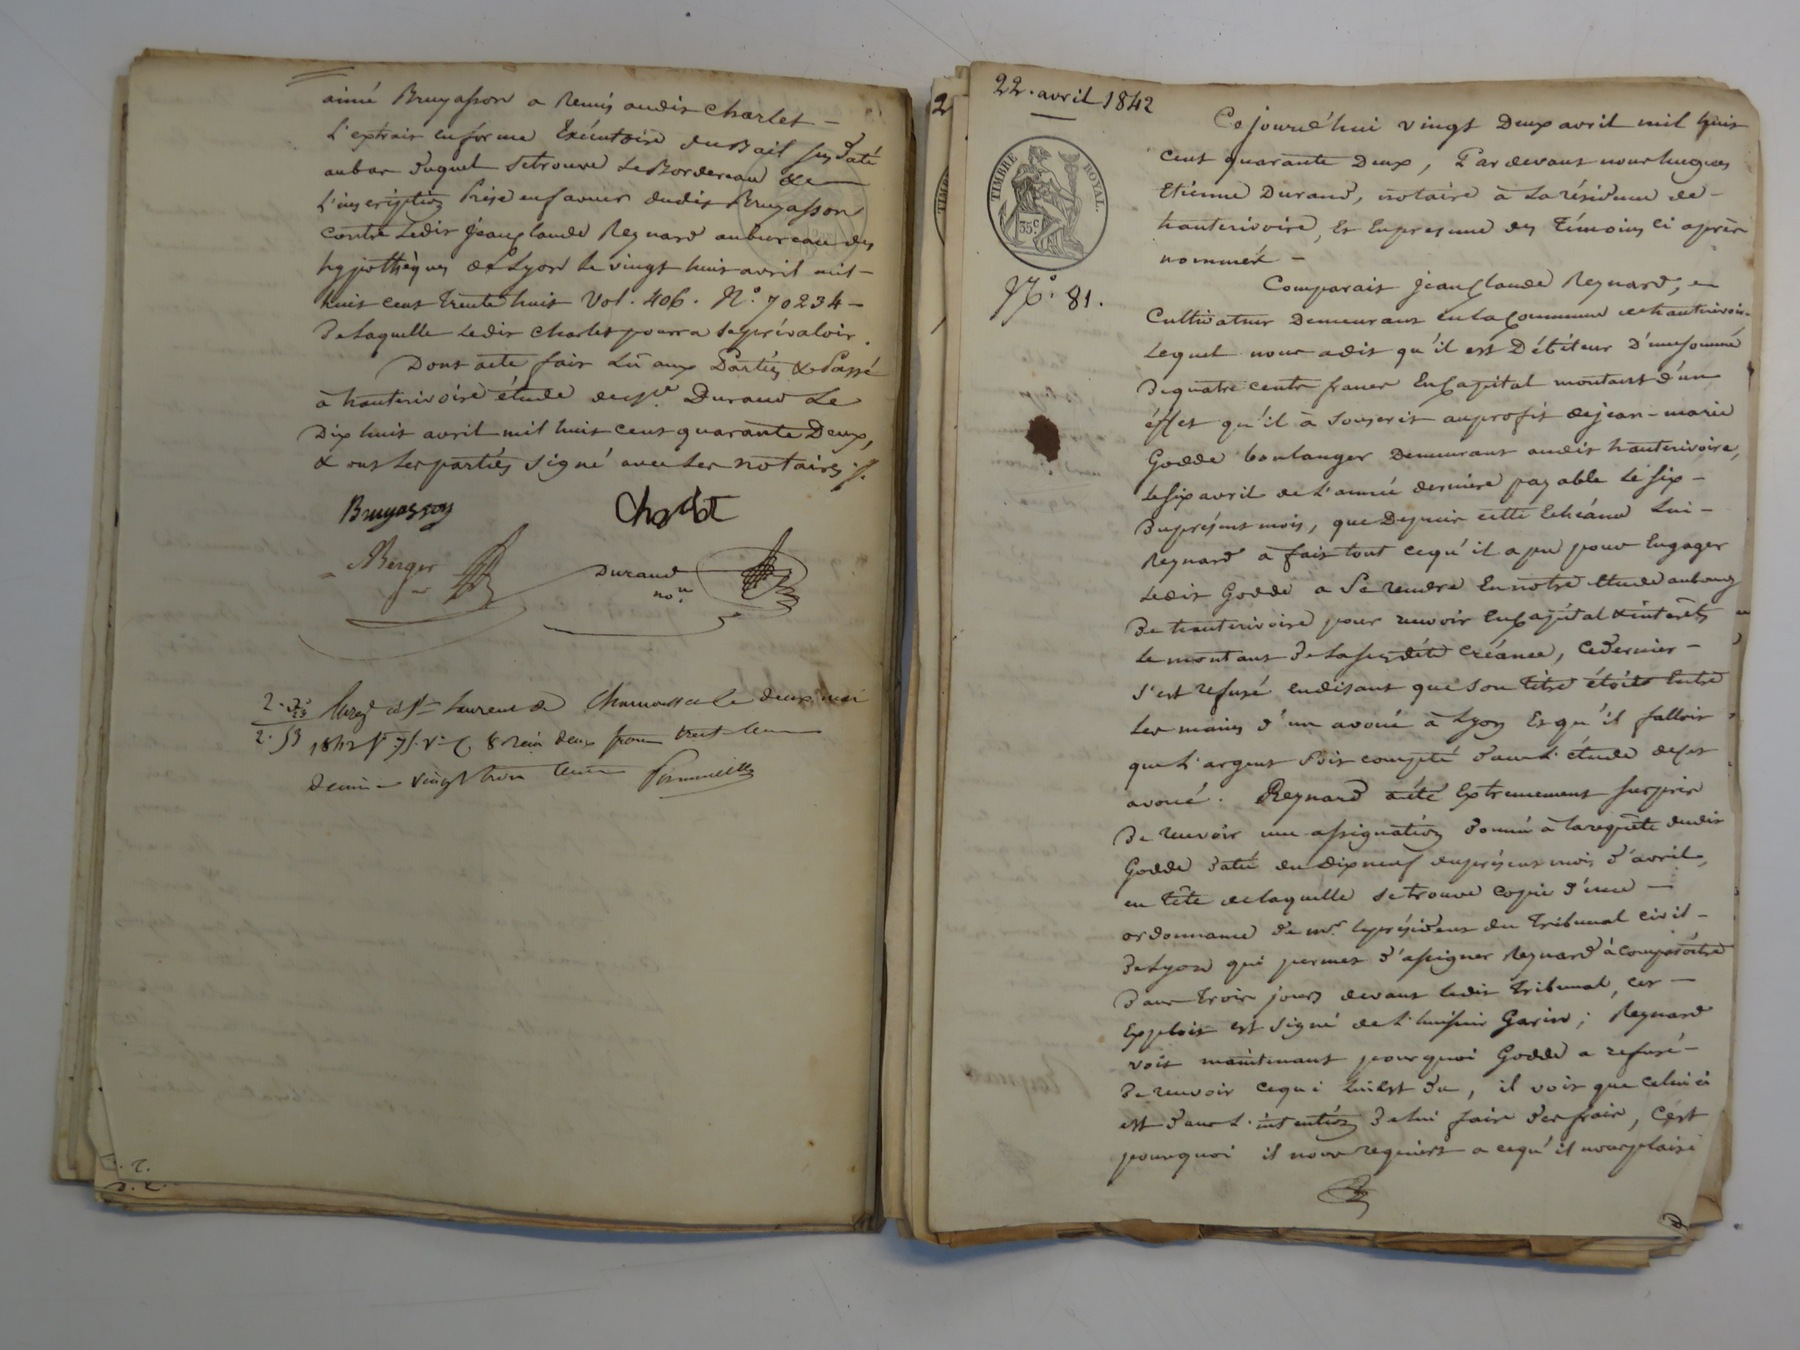 aimé Bruyasson a Remis audit Charlet –
L'extrait en forme Exécutoire du Bail susdaté
au bas duquel se trouve Le Bordereau de
L'inscription Prise en faveur dudit Bruyasson
contre Ledit Jean Claude Reynard au bureau des
hypothèques de Lyon Le vingt huit avril mil –
huit cent trente huit Vol. 406. N.° 70234 –
De Laquelle Ledit Charlet pourra se prévaloir.
Dont acte fait Lû aux Parties & Passé
à hauterivoire étude de Me. Durand Le
Dix huit avril mil huit cent quarante Deux,
& ont Les parties signé avec Les notaires ./.
Bruyasson Charlet
Berger Durand
nore.
2.
2. 53 Enregé à St Laurent de Chamousset le deux mai
1842 fo 75 vo C. 8 reçu deux francs trente
décime vingt trois centimes
22. avril 1842
TIMBRE ROYAL.
35c
No. 81.
Cejourd'hui vingt Deux avril mil huit
cent quarante Deux, Par devant nous hugues
Etienne Durand, notaire à La résidence de –
hauterivoire, Et En présence des Témoins ci après
nommés –
Comparait Jean Claude Reynard,
Cultivateur Demeurant en La Commune de hauterivoire
Lequel nous a dit qu'il est Débiteur D'une somme
De quatre cents francs En Capital montant d'un
éffet qu'il à souscrit au profit de jean-marie
Godde boulanger Demeurant audit hauterivoire,
Le Six avril de L'année dernière payable Le six –
Du présent mois, que Depuis cette Echéance Lui –
Reynard à fait tout ce qu'il a pu pour Engager
Ledit Godde a Se rendre En notre Etude au bourg
De hauterivoire pour recevoir En Capital & intérêts
Le montant De La susdite créance, ce dernier –
s'est refusé en disant que son titre étoits Entre
Les mains d'un avoué à Lyon Et qu'il falloit
que L'argent soit compté dans L'étude de cet
avoué. Reynard a été Extremement surpris
De recevoir une assignation donnée à la requête dudit
Godde daté du Dix neuf du présent mois d'avril,
en tête de laquelle se trouve copie d'une –
ordonnance de mr. Le président du Tribunal civil –
de Lyon qui permet d'assigner Reynard à comparoître
dans trois jours devant Ledit tribunal, cet –
Exploit est signé de L'huissier Garin; Reynard
voit maintenant pourquoi Godde a refusé –
De recevoir ce qui Lui est Du, il voit que celui ci
est dans L'intention De lui faire des frais, C'est
pourquoi il nous requiert a ce qu'il nous plaise